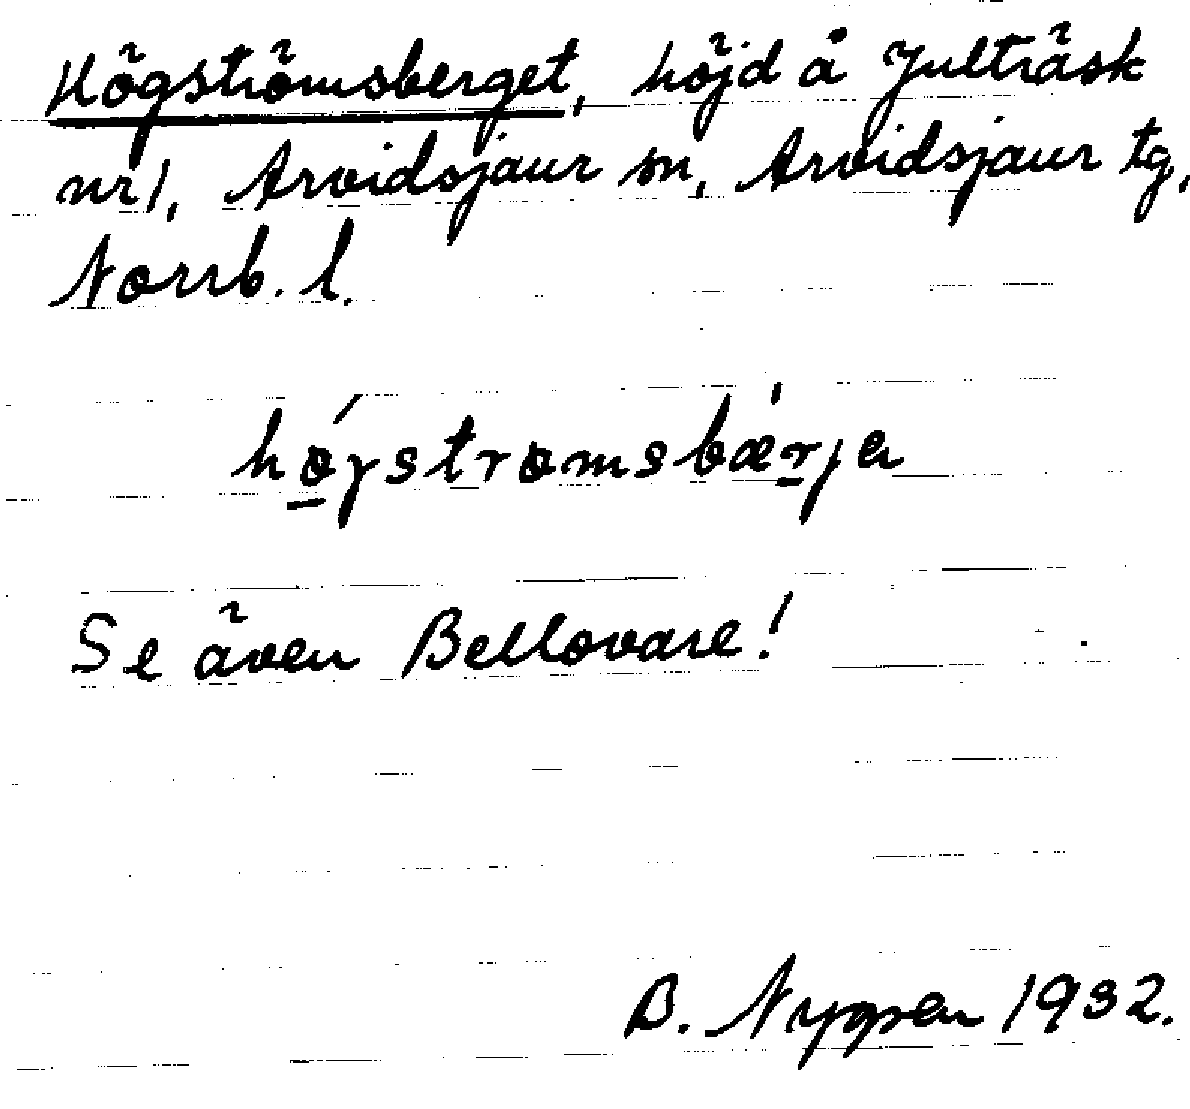 Högströmsberget, höjd å Julträsk
nr 1, Arvidsjaur sn, Arvidsjaur tg,
Norrb. l.
hǿ̱gstrømsbæ̍ṟja
Se även Bellovare!
B. Nygren 1932.